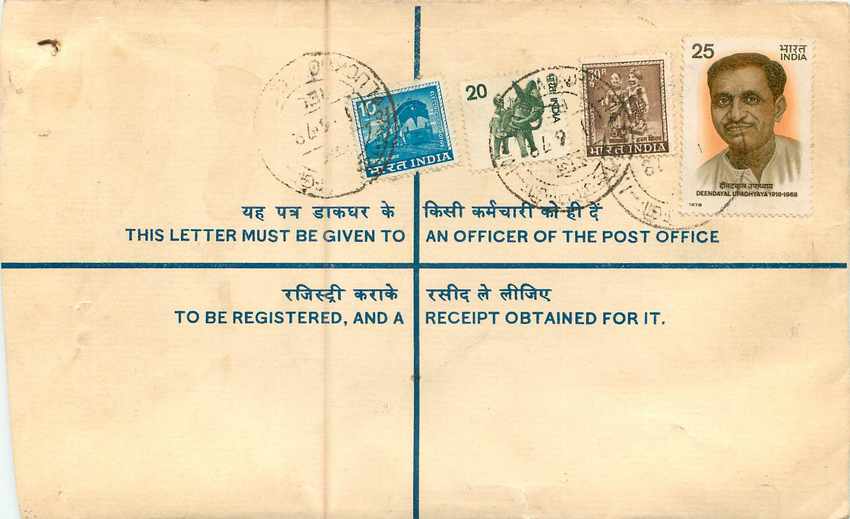 10
भारत INDIA
20
भारत INDIA
भारत INDIA
25
भारत
INDIA
दीनदयाल उपाध्याय
DEENDAYAL UPADHYAYA 1916-1968
1978
यह पत्र डाकघर के किसी कर्मचारी को ही दें
THIS LETTER MUST BE GIVEN TO AN OFFICER OF THE POST OFFICE
रजिस्ट्री कराके रसीद ले लीजिए
TO BE REGISTERED, AND A RECEIPT OBTAINED FOR IT.